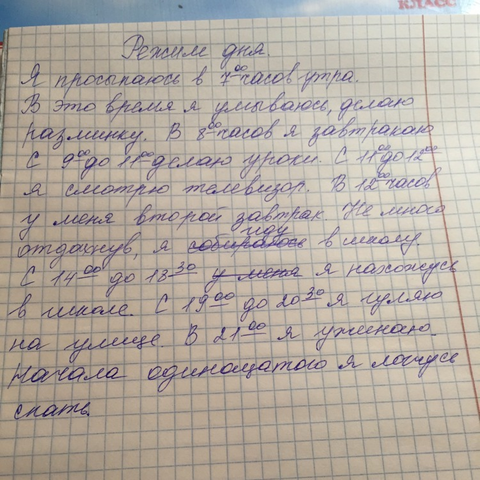 КЛАСС
Режим дня.
Я просыпаюсь в 7⁰⁰ часов утра.
В это время я умываюсь, делаю
разминку. В 8⁰⁰ часов я завтракаю
С 9⁰⁰ до 11⁰⁰ делаю уроки. С 11⁰⁰ до 12⁰⁰
я смотрю телевизор. В 12⁰⁰ часов
у меня второй завтрак. Не много
иду
отдохнув, я собираюсь в школу.
С 14⁰⁰ до 18³⁰ у меня я нахожусь
в школе. С 19⁰⁰ до 20³⁰ я гуляю
на улице. В 21⁰⁰ я ужинаю.
Начала одинощатого я ложусь
спать.